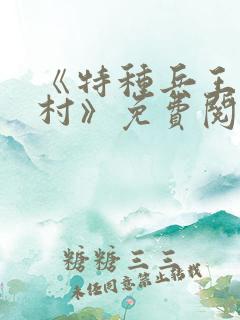 《特种兵王
村》免費閱
糖糖三三
未经同意禁止转载